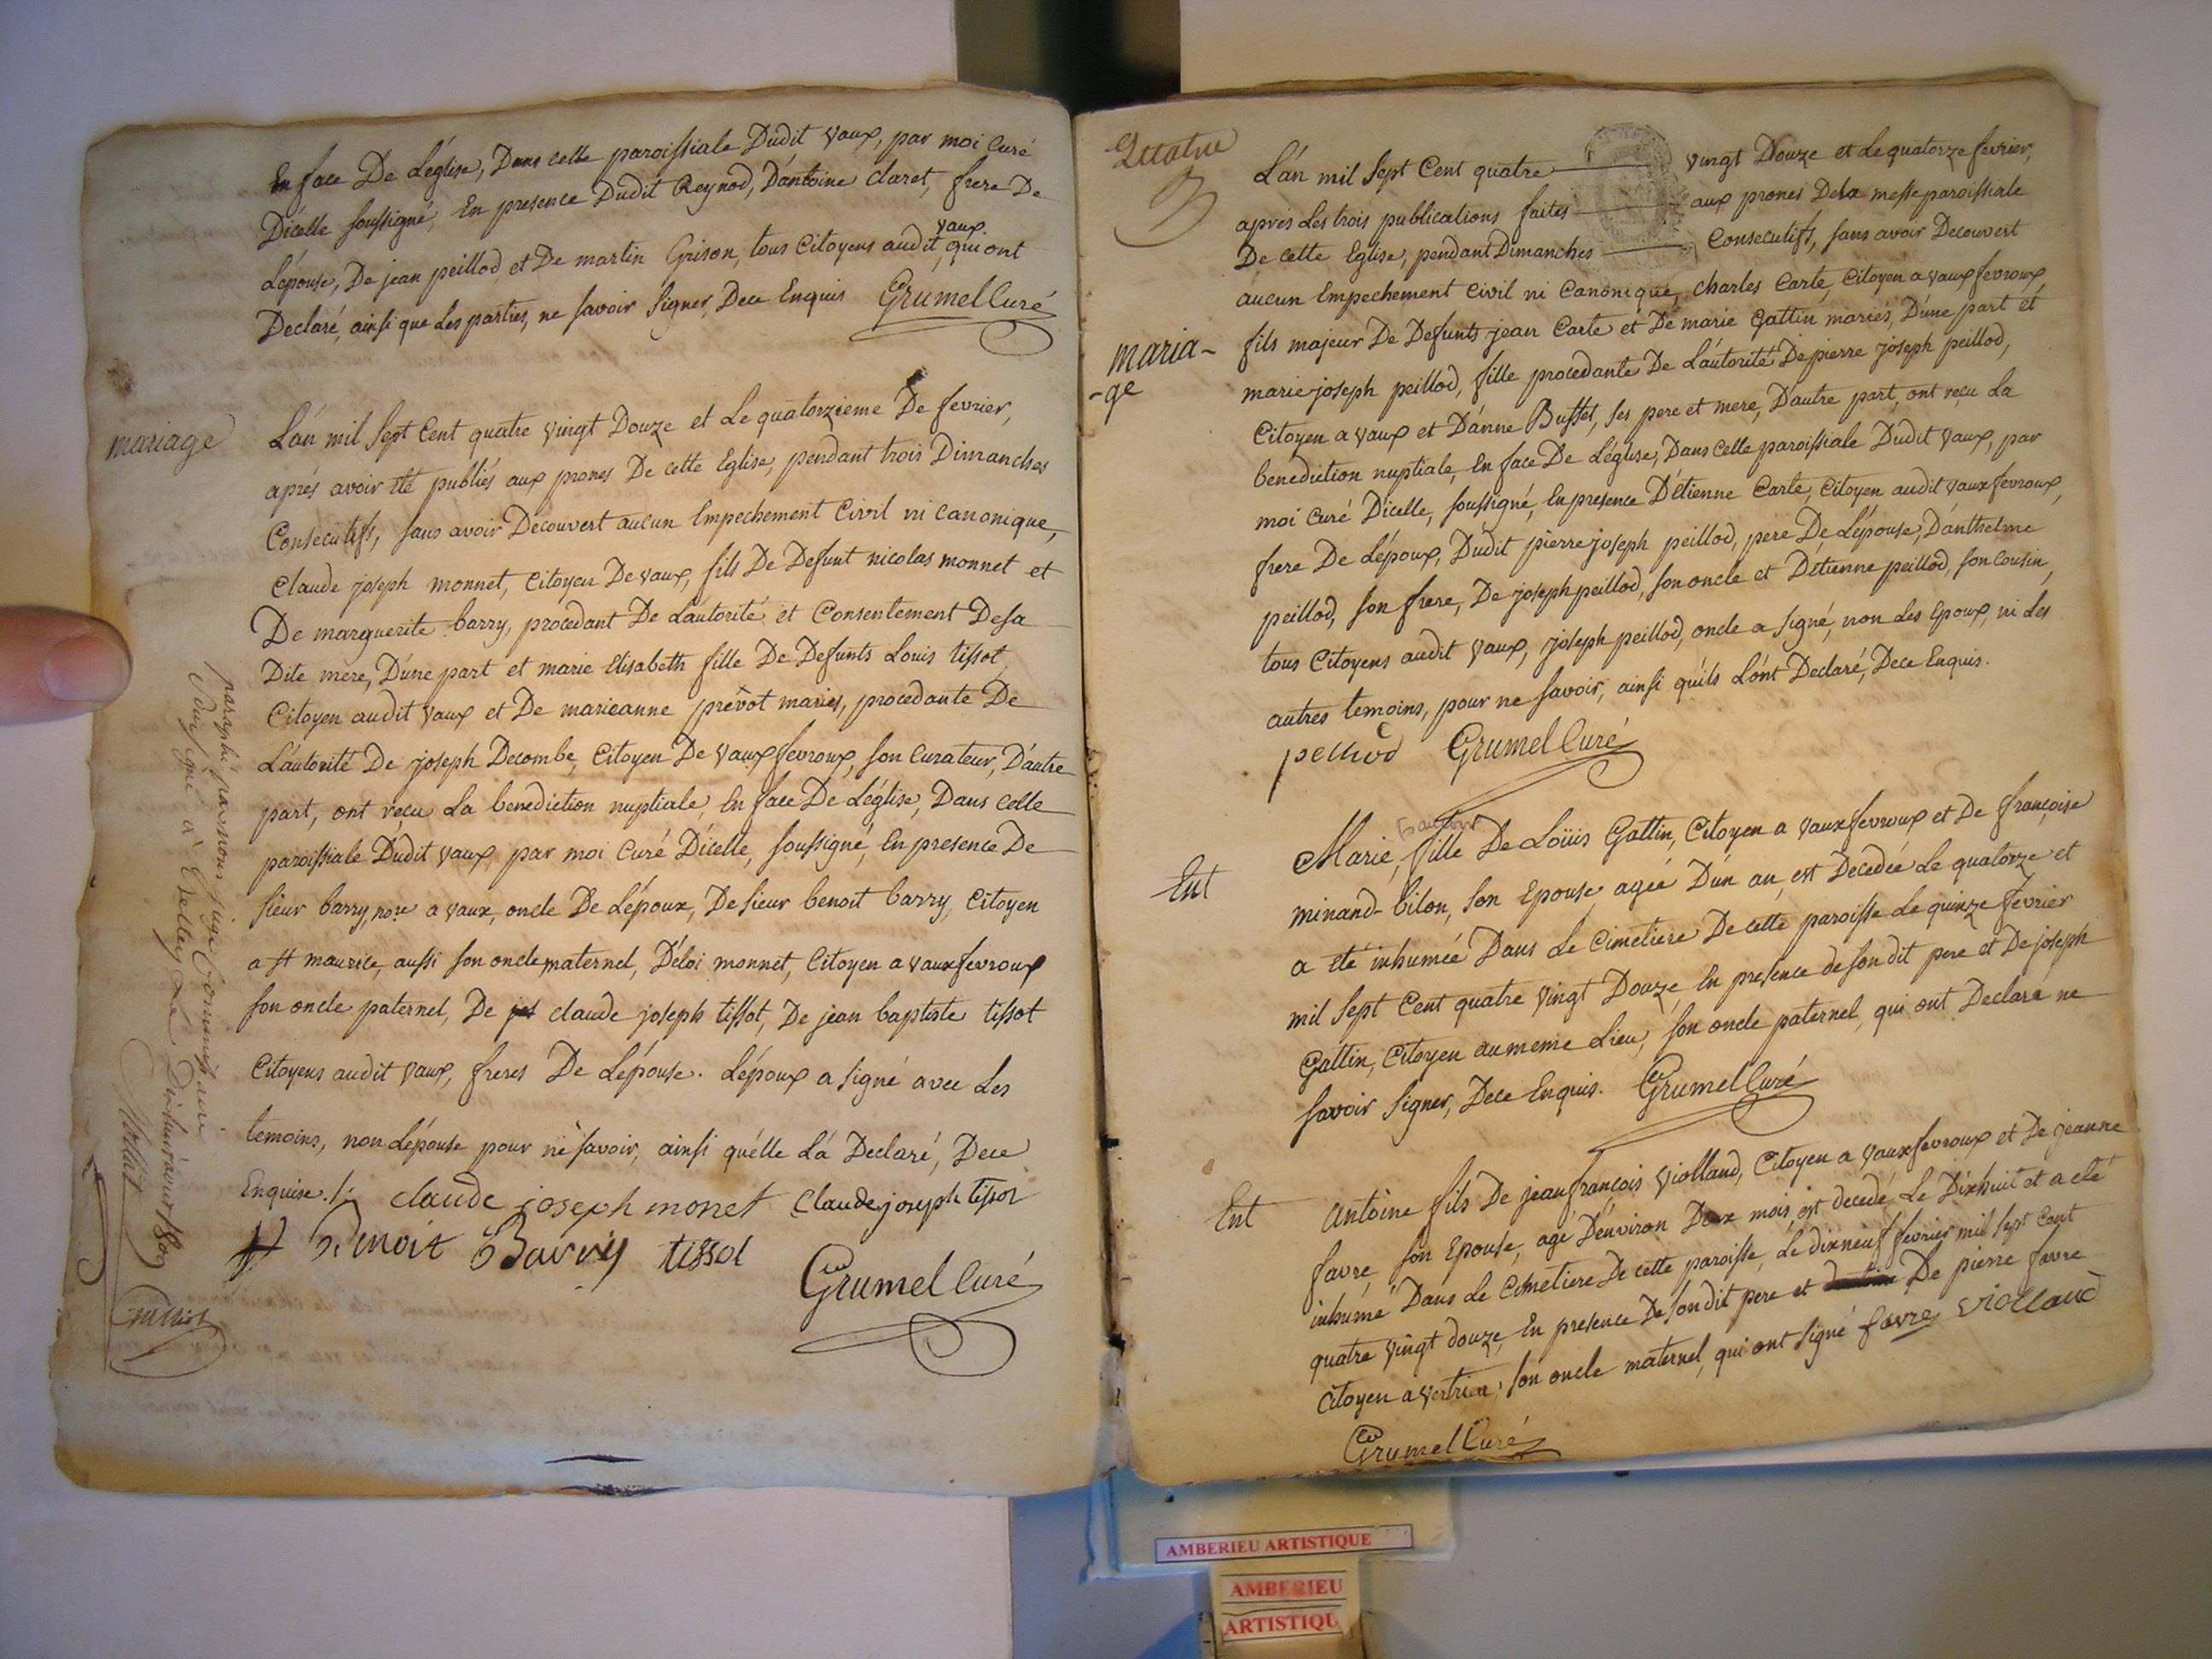 En face De L'église, Dans celle paroissiale Dudit vaux, par moi Curé
D'icelle soussigné, En presence Dudit Reynod, D'antoine claret, frere De
vaux
L'épouse, De jean peillod et De martin Grison, tous Citoyens audit, qui ont
Declaré, ainsi que Les parties, ne savoir signer, Dece Enquis Grumel Curé
mariage
L'an mil sept Cent quatre vingt Douze et Le quatorzieme De fevrier,
aprés avoir été publiés aux prones De cette Eglise, pendant trois Dimanches
Consecutifs, sans avoir Découvert aucun Empechement Civil ni canonique,
claude joseph monnet, Citoyen De vaux, fils De Defunt nicolas monnet et
De marguerite barry, procedant De L'autorité et Consentement De sa
Dite mere, D'une part et marie Elisabeth fille De Defunts Louis tissot,
Citoyen audit vaux et De marieanne prévot mariés, procedante De
L'autorité De joseph Decombe, Citoyen De vauxfevroux, son Curateur, D'autre
part, ont reçu La benediction nuptiale, En face De L'église, Dans celle
paroissiale Dudit vaux, par moi Curé D'icelle, soussigné, En presence De
sieur barry, nore a vaux, oncle De L'époux, De sieur benoit barry, Citoyen
a st maurice, aussi son oncle maternel, D'éloi monnet, Citoyen a vauxfevroux
son oncle paternel, De claude joseph tissot, De jean baptiste tissot
Citoyens audit vaux, freres De L'épouse. L'époux a signé avec Les
temoins, non L'épouse pour ne savoir, ainsi qu'elle L'a Declaré, Dece
Enquise./. claude joseph monet Claude joseph tissot
Benoit Barry tissot
Grumel Curé
paraphé par nous juge Commissaire
soussigné a Belley Le Dixhuit aout 1809
Quatre
L'an mil sept Cent quatre vingt Douze et Le quatorze fevrier,
aprés Les trois publications faites aux prones Dela messe paroissiale
De cette Eglise, pendant Dimanches Consecutifs, sans avoir Decouvert
aucun Empechement Civil ni Canonique, charles Carte, Citoyen a vauxfevroux,
maria-
-ge
fils majeur De Defunts jean Carte et De marie Gattin mariés, D'une part et
marie joseph peillod, fille procedante De L'autorité De pierre joseph peillod,
Citoyen a vaux et D'anne Buffet, ses pere et mere, D'autre part, ont reçu La
benediction nuptiale, En face De L'église, Dans celle paroissiale Dudit vaux, par
moi Curé D'icelle, soussigné, En presence D'étienne Carte, Citoyen audit vauxfevroux,
frere De L'époux, Dudit pierre joseph peillod, pere De L'épouse, D'anthelme
peillod, son frere, De joseph peillod, son oncle et D'étienne peillod, son Cousin,
tous Citoyens audit vaux, joseph peillod, oncle a signé, non Les Epoux, ni Les
autres temoins, pour ne savoir, ainsi qu'ils L'ont Declaré, Dece Enquis.
peillod Grumel Curé
Ent
Marie, fille De Loüis Gattin, Citoyen a vauxfevroux et De françoise
minand-bilon, son Epouse, agée D'un an, est Decedée Le quatorze et
a été inhumée Dans Le Cimetiere De cette paroisse Le quinze fevrier
mil sept Cent quatre vingt Douze, En presence de son dit pere et De joseph
Gattin, Citoyen au meme Lieu, son oncle paternel, qui ont Declaré ne
savoir signer, Dece Enquis. Grumel Curé
Ent
antoine fils De jean françois Violland, Citoyen a vauxfevroux et De jeanne
favre, son Epouse, agé D'environ Deux mois est decedé Le Dixhuit et a été
inhumé Dans Le Cimetiere De cette paroisse, Le dixneuf fevrier mil sept Cent
quatre vingt douze, En presence De son dit pere et De pierre favre
Citoyen a son oncle maternel, qui ont signé favre violland
Grumel Curé
AMBERIEU ARTISTIQUE
AMBERIEU
ARTISTIQU